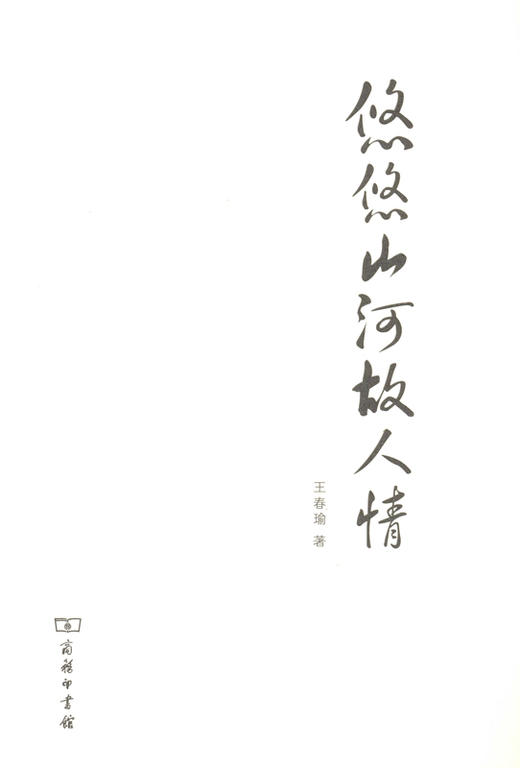 悠悠山河故人情
王春瑜 著
商務印書館